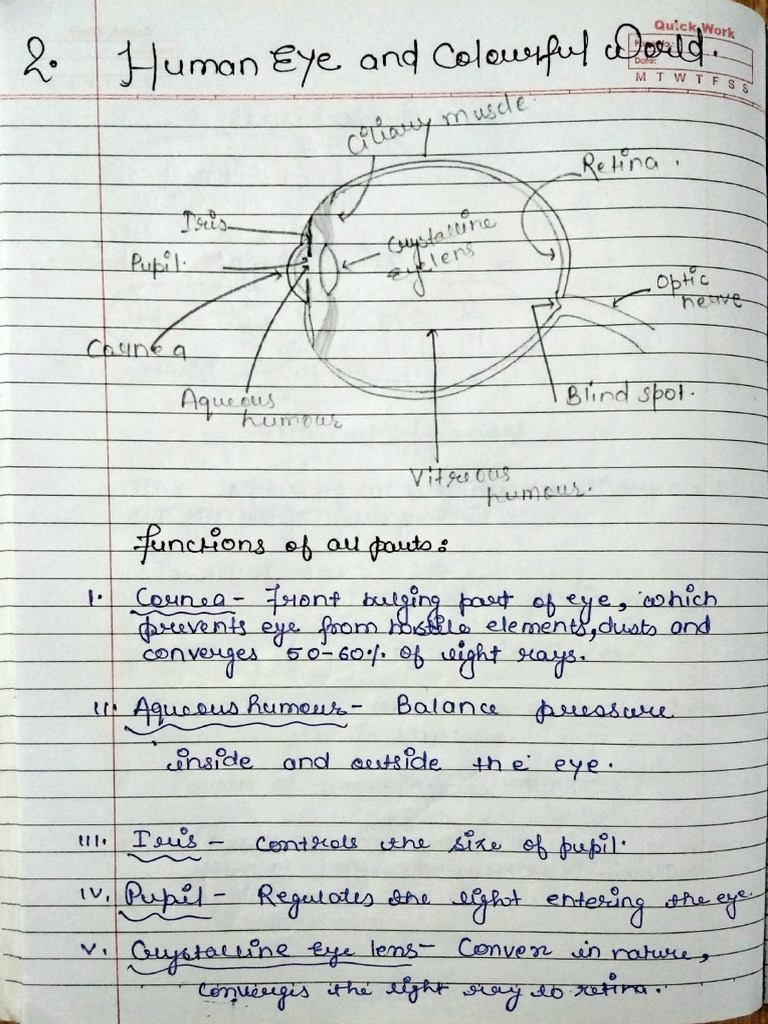 Quick Work
Page No.
Date:
M T W T F S S
2. Human Eye and Colourful World.
Ciliary muscle
Retina.
Iris
Crystalline
eyelens
Pupil.
Optic
nerve
Cornea
Aqueous
humour
Blind spot.
Vitreous
humour.
Functions of all parts:
I. Cornea - Front bulging part of eye, which
prevents eye from hostile elements, dusts and
converges 50-60% of light rays.
II. Aqueous humour - Balance pressure
inside and outside the eye.
III. Iris - controls the size of pupil.
IV. Pupil - Regulates the light entering the eye.
V. Crystalline Eye lens - Convex in nature,
convergis the light ray to retina.